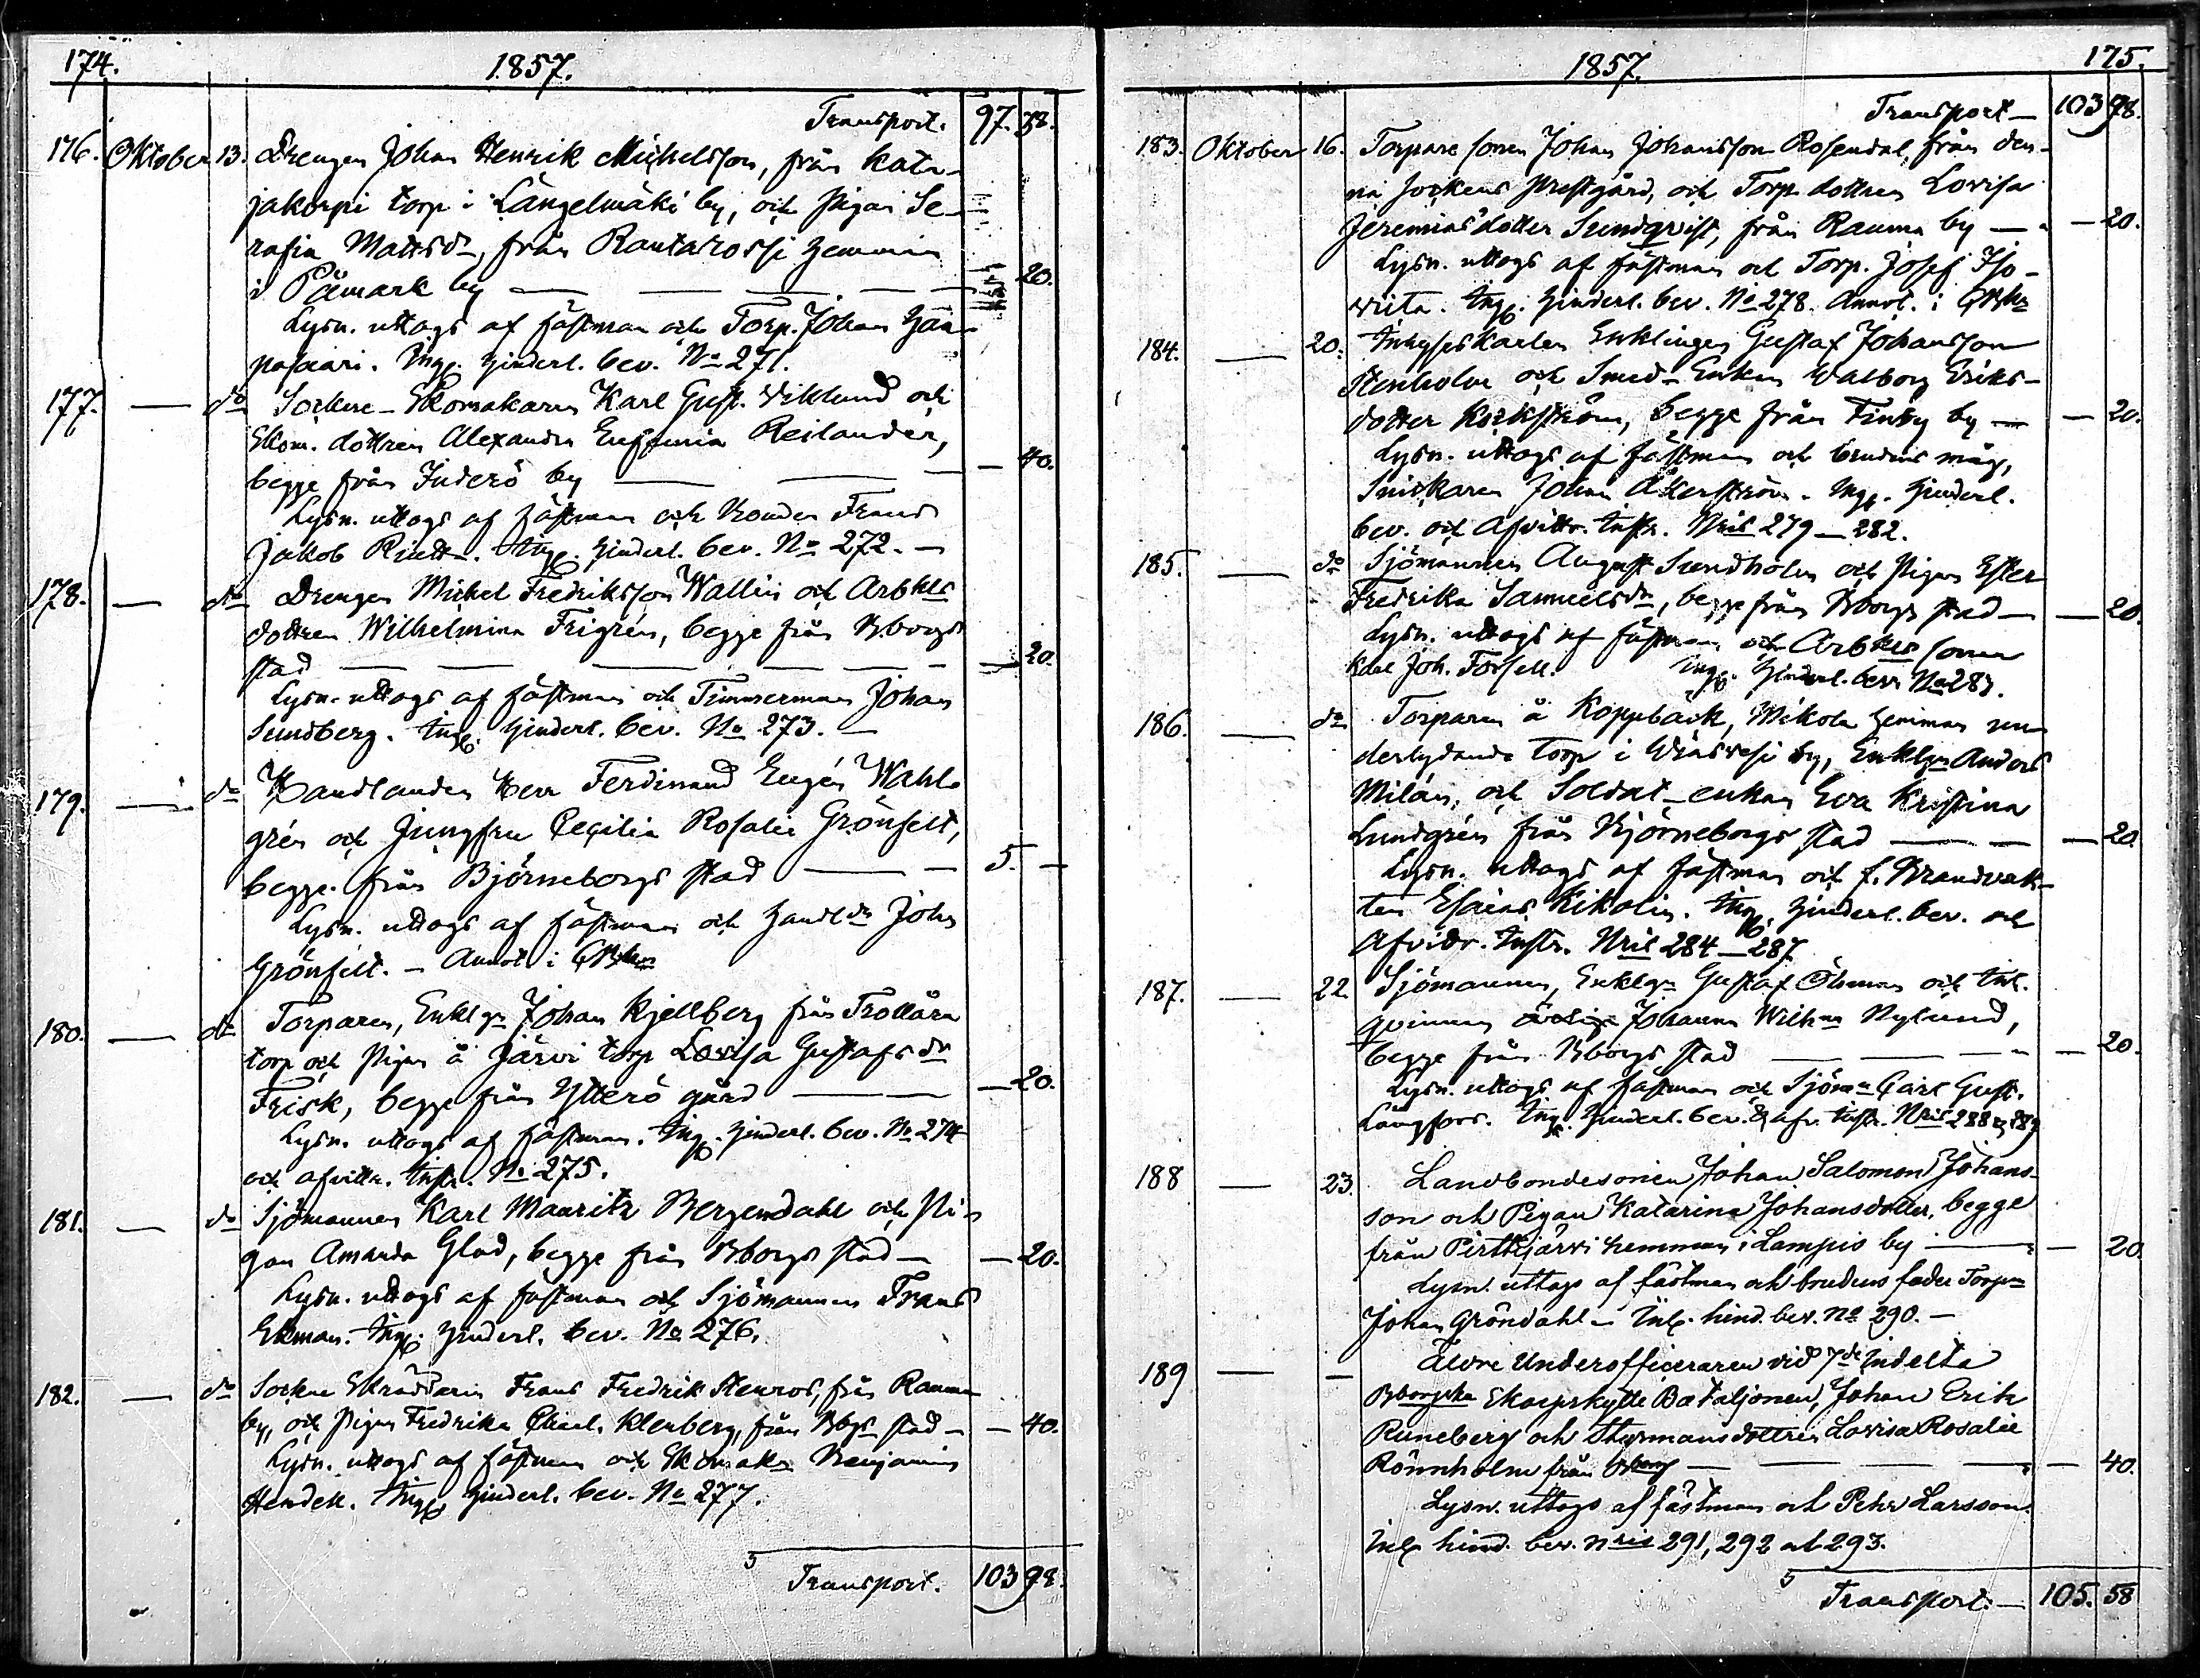 174.
1857.
Transport. 97. 38.
176. Oktober 13. Drengen Johan Henrik Michelsson, från Kata-
jakorpi torp i Längelmäki by, och Pigan Se-
rafia Mattsdr, från Rantakossi hemman
i Påmark by — — — — 20.
Lysn. uttogs af fästman och Torp. Johan
Ing. hinderl. bev. No 271.
177. — do Socken-Skomakaren Karl Gust. Wiklund och
Skom. dottren Alexandra Eufemia Reilander,
begge från Inderö by — — — 40.
Lysn. uttogs af fästman och Bonden Frans
Jakob Ing. hinderl. bev. No 272. —
178. — do Drengen Mickel Fredriksson Wallin och Arbkls
dottren Wilhelmina Frigrén, begge från Bborgs
stad — — — — — 20.
Lysn. uttogs af fästman och Timmerman Johan
Sundberg. Ing. hinderl. bev. No 273. —
179. — do Handlanden Herr Ferdinand Eugén Wahl-
grén och Jungfru Cecilia Rosalie Grönfelt,
begge från Björneborgs stad — — 5. —
Lysn. uttogs af fästman och Handldn John
Grönfelt. — Annot. i
180. — do Torparen, Enklgn Johan Kjellberg från Trollåra
torp och Pigan å Järvi torp Lovisa Gustafsdr
Frisk, begge från Ytterö gård — — — 20.
Lysn. uttogs af fästman. Ing. hinderl. bev. No 274
och afvittr. Instr. No 275.
181. — do Sjömannen Karl Mauritz Bergendahl och Pi-
gan Amanda Glad, begge från Bborgs stad — — 20.
Lysn. uttogs af fästman och Sjömannen Frans
Ekman. Ing. hinderl. bev. No 276.
182. — do Socken Skräddaren Frans Fredrik Stenros, från Rauma
by, och Pigan Fredrika Klenberg, från Bbgs stad — — 40.
Lysn. uttogs af fästman och Skomakn Benjamin
Ing. hinderl. bev. No 277.
Transport. 103 98.
175.
1857.
Transport — 103 98.
183. Oktober 16. Torpare sonen Johan Johansson Rosendal, från den-
na Sockens Prestgård, och Torp. dottren Lovisa
Jeremias dotter Sundqvist, från Rauma by — — 20.
Lysn. uttogs af fästman och Torp. Josef Iso-
Ing. hinderl. bev. No 278. Annot. i
184. — 20. Inhyseskarlen Enklingen Gustaf Johansson
Stenholm och Smed-Enkan Walborg Eriks-
dotter begge från Finby by — — 20.
Lysn. uttogs af fästman och brudens måg,
Snickaren Johan Åkerström. Ing. hinderl.
bev. och Afvittr. Instr. Nris 279 — 282.
185. — do Sjömannen August Sundholm och Pigan Ester
Fredrika Samuelsdr, begge från Bborgs stad — — 20.
Lysn. uttogs af fästman och Arbkls sonen
Karl Joh. Forsell. Ing. hinderl. bev. No 283.
186. — do Torparen å Koppbäck, Mikola hemman un-
derlydande torp i by, Enklgn Anders
Milén, och Soldat-enkan Eva Kristina
Lundgrén från Björneborgs stad — — — 20.
Lysn. uttogs af fästman och f. Brandvak-
ten Esaias Kikolin. Ing. hinderl. bev. och
Afvittr. Instr. Nris 284 — 287
187. — 22. Sjömannen, Enklgn Gustaf Öhman och Inh.
qvinnan Johanna Wilhna Nylund,
begge från Bborgs stad — — — 20.
Lysn. uttogs af fästman och Sjömn Carl Gust.
Långfors. Ing. hinderl. bev. & afv. Instr. Nris 288 & 289
188 — 23. Landbondesonen Johan Salomon Johans-
son och Pigan Katarina Johansdotter, begge
från Pirttijärvi hemman i Lampis by — — 20
Lysn. uttogs af fästman och brudens fader Torpn
Johan Gröndahl — Inl. hind. bev. No 290. —
189 — — Äldre Underofficeraren vid 7de Indelta
Bborgska Skarpskytte Bataljonen, Johan Erik
Runeberg och Styrmansdottren Lovisa Rosalie
Rönnholm från Bborg — — — — 40.
Lysn. uttogs af fästman och Pehr Larsson.
Inl. hind. bev. Nris 291, 292 och 293.
Transport. — 105. 58